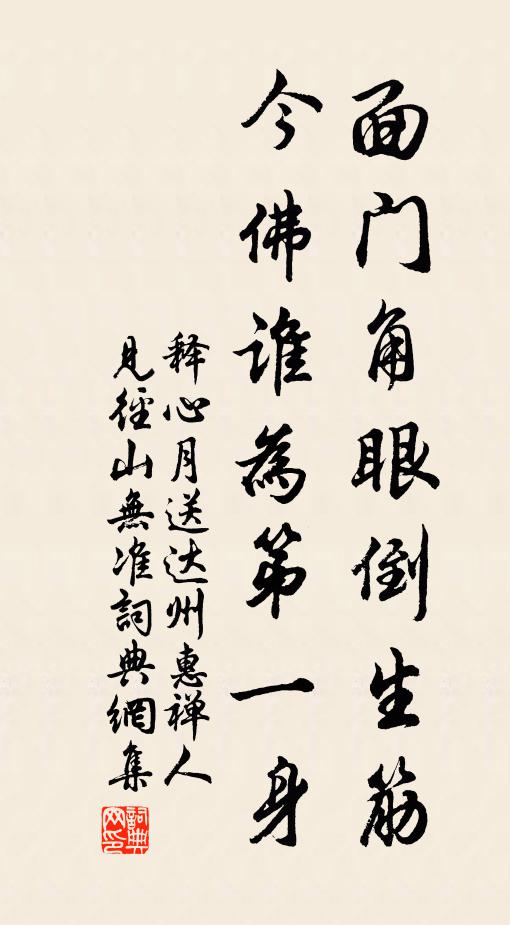 面门角眼倒生筋
今佛谁為第一身
释心月送达州惠禅人
見徑山無准詞典網集
詞典網印